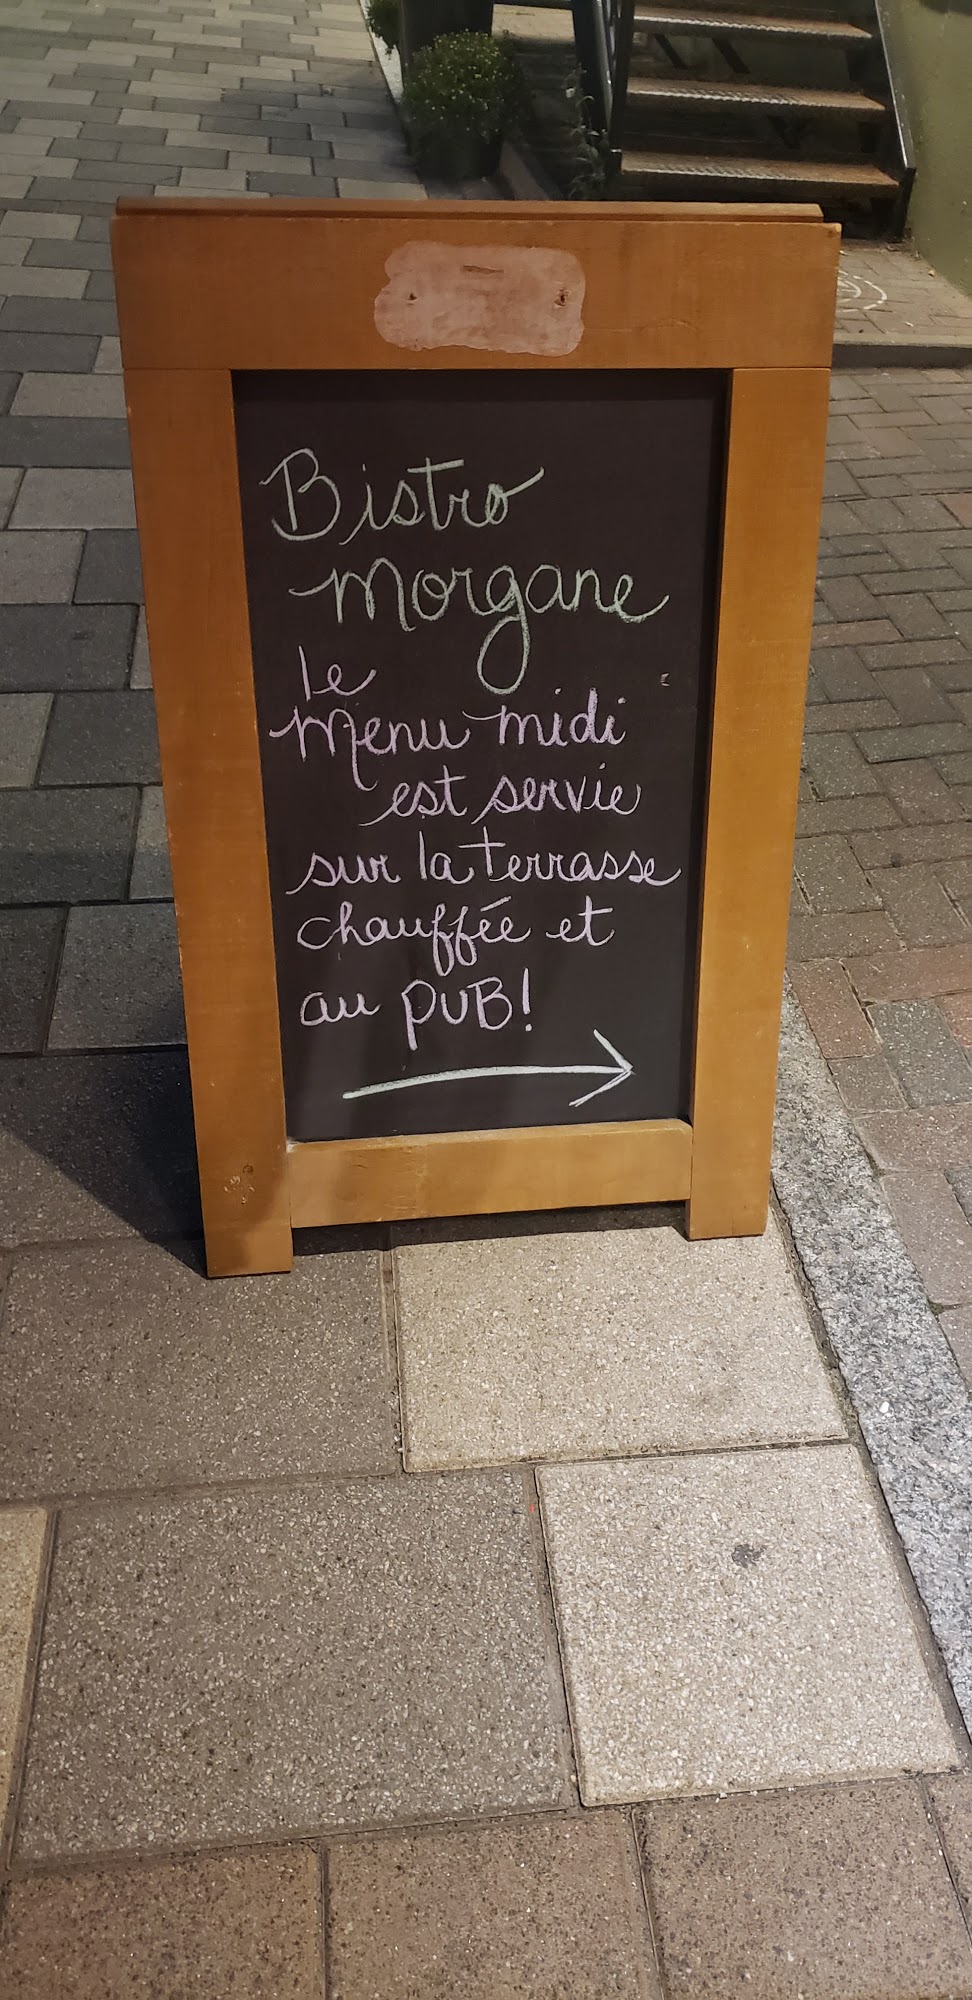 Bistro
Morgane
le
Menu midi
est servie
sur la terrasse
chauffée et
au PUB!